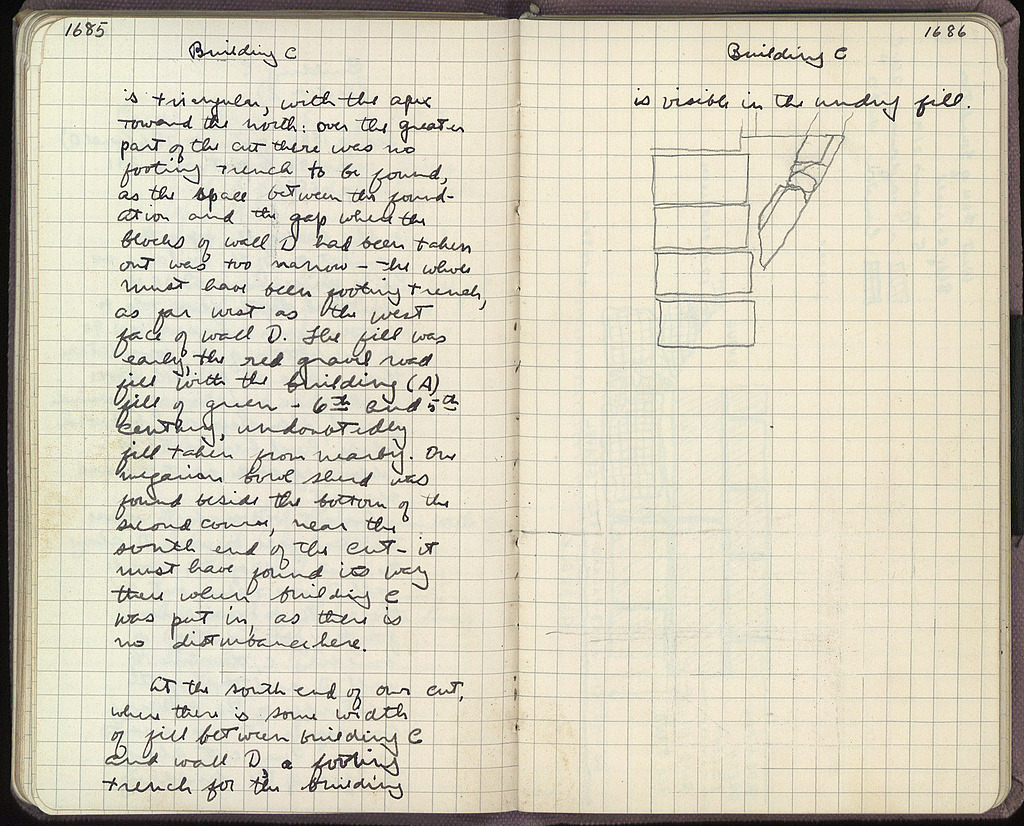 1685
Building C
is triangular, with the apex
toward the north: over the greater
part of the cut there was no
footing trench to be found,
as the space between the found-
ation and the gap where the
blocks of wall D had been taken
out was too narrow - the whole
must have been footing trench,
as far west as the west
face of wall D. The fill was
early, the red gravel road
fill with the building (A)
fill of green - 6th and 5th
century, undoubtedly
fill taken from nearby. One
megarian bowl sherd was
found beside the bottom of the
second course, near the
south end of the cut - it
must have found its way
there when building C
was put in, as there is
no disturbance here.
At the south end of our cut,
where there is some width
of fill between building C
and wall D, a footing
trench for the building
1686
Building C
is visible in the undug fill.